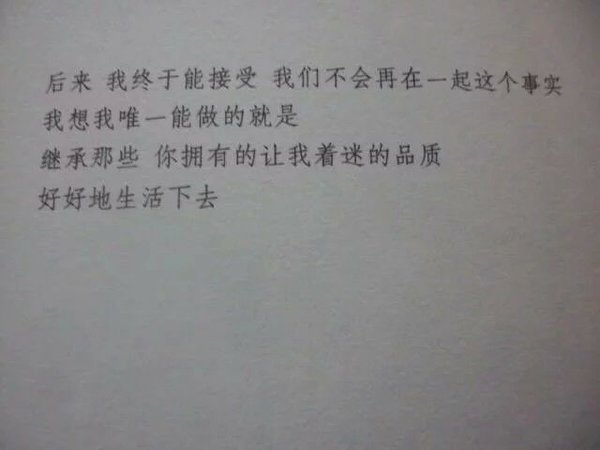 后来 我终于能接受 我们不会再在一起这个事实
我想我唯一能做的就是
继承那些 你拥有的让我着迷的品质
好好地生活下去